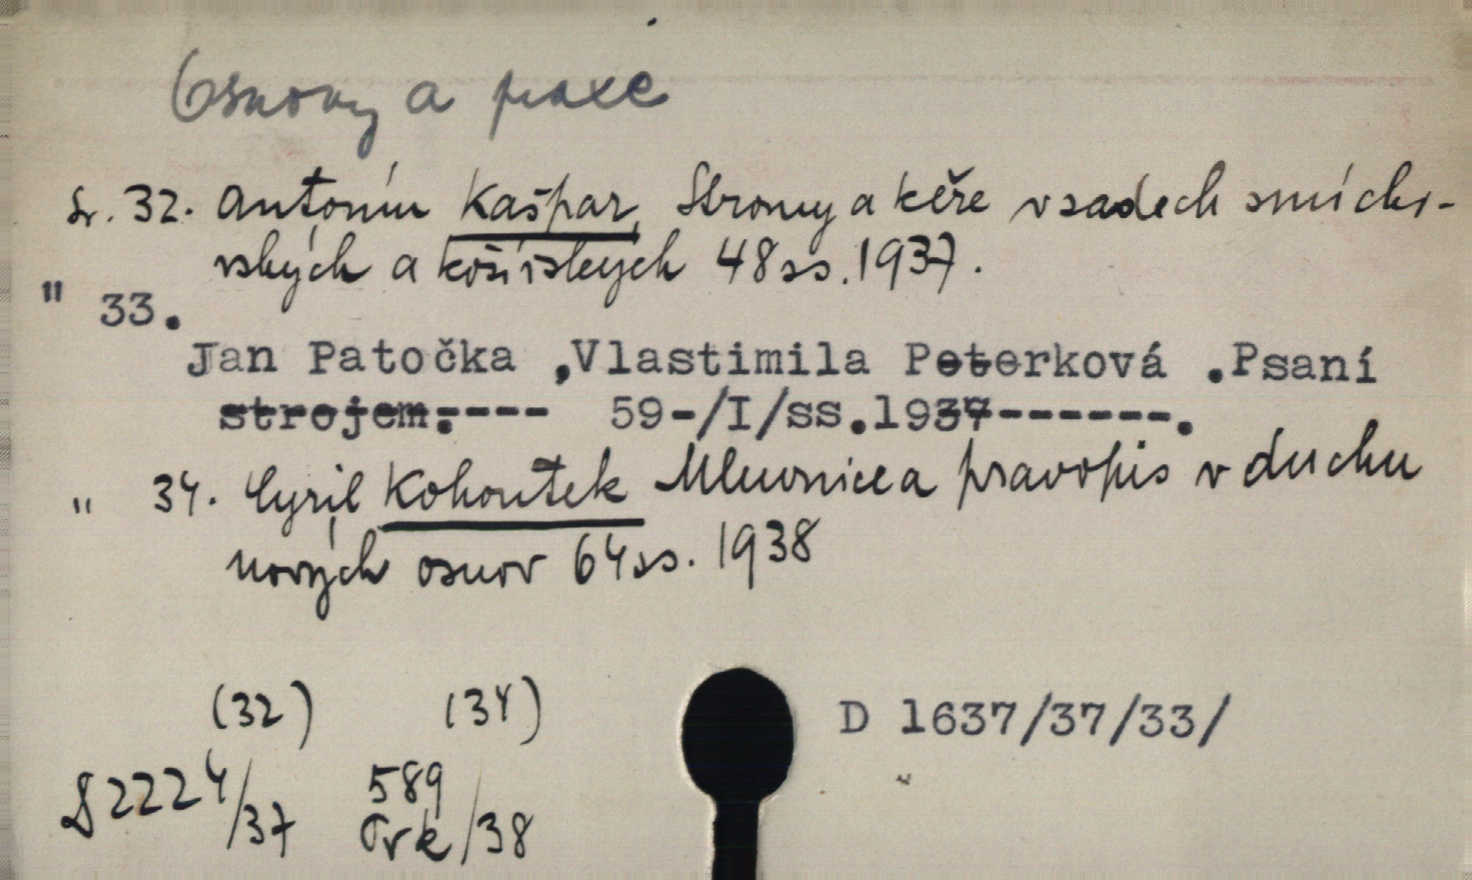 Osnovy a praxe
Sv. 32. Antonín Kašpar, Stromy a keře v sadech smícho-
vských a košířských 48 ss. 1937.
" 33.
Jan Patočka ,Vlastimila Peterková .Psaní
strojem.---- 59-/I/ss.1937------.
" 34. Cyril Kohoutek Mluvnice a pravopis v duchu
nových osnov 64 ss. 1938
(32) (34)
D 1637/37/33/
D 2224/37 589 Prk/38